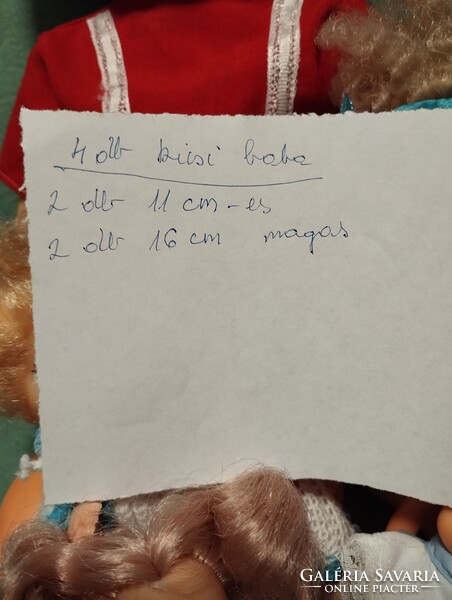 4 db kicsi baba
2 db 11 cm-es
2 db 16 cm magas
GALÉRIA SAVARIA
ONLINE PIACTÉR